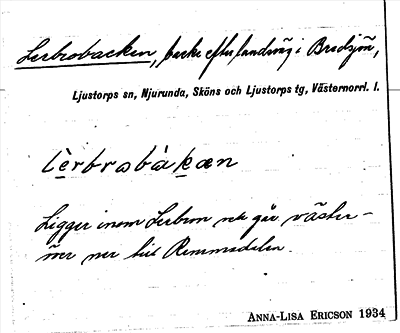 Lerbrobacken, backe efter landsväg i Bredsjön,
Ljustorps sn, Njurunda, Sköns och Ljustorps tg, Västernorrl. l.
lèrbrobàkæn
Ligger inom Lerbron och går väster-
över ner till Remmardalen.
ANNA-LISA ERICSON 1934